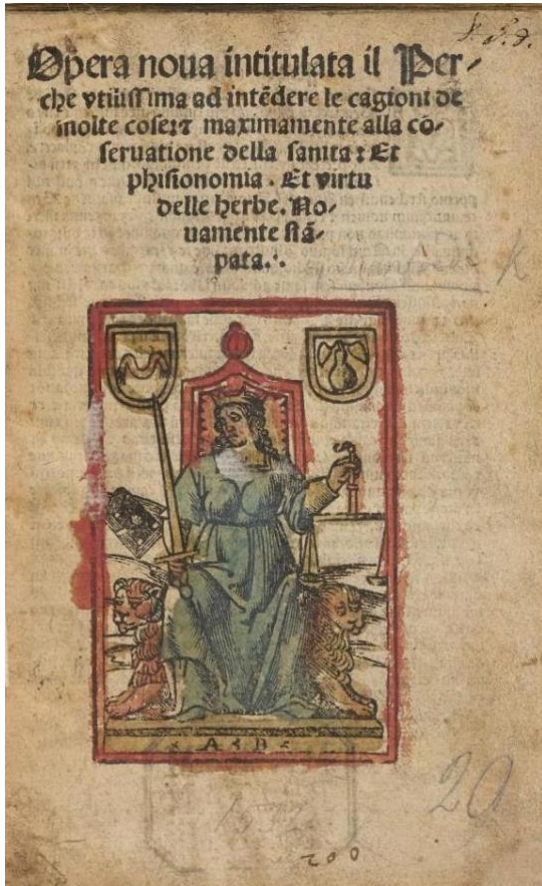 Opera noua intitulata il Per-
che vtilissima ad intēdere le cagioni de
molte cose: ⁊ maximamente alla cō-
seruatione della sanita: Et
phisionomia. Et virtu
delle herbe. No-
uamente stā-
pata.
A
20
200